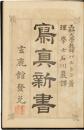 理學士石川巖譯
寫真新書
玄鹿館發兌